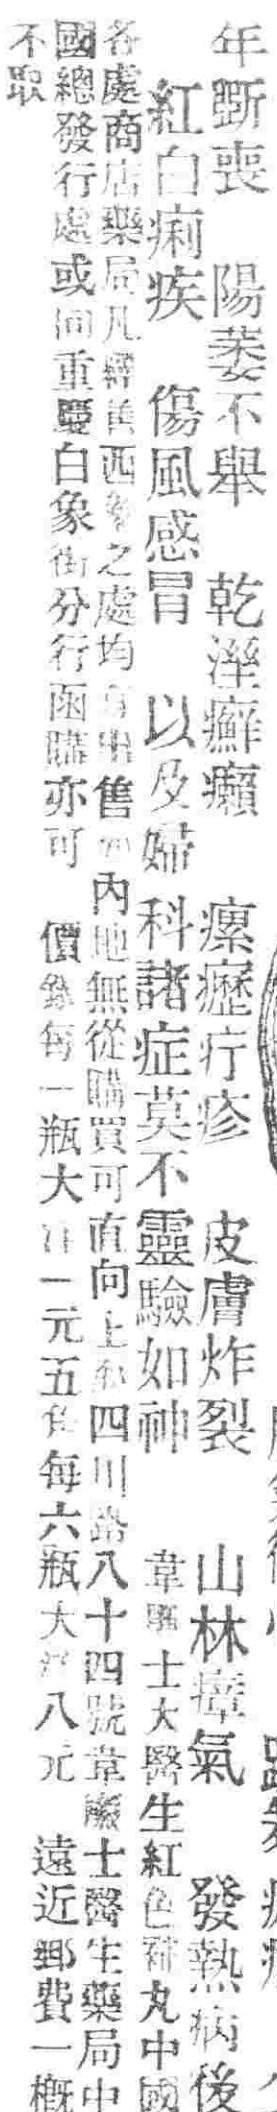 年斲喪 陽萎不舉 乾溼癬癩 瘰癧疔疹 皮膚炸裂 山林瘴氣 發熱病後
紅白痢疾 傷風感冒 以及婦科諸症莫不靈驗如神 韋廉士大醫生紅色補丸中國
各處商店藥局凡經售西藥之處均有出售如內地無從購買可直向上海四川路八十四號韋廉士醫生藥局中
國總發行處或向重慶白象街分行函購亦可 價銀每一瓶大洋一元五角每六瓶大洋八元 遠近郵費一概
不取